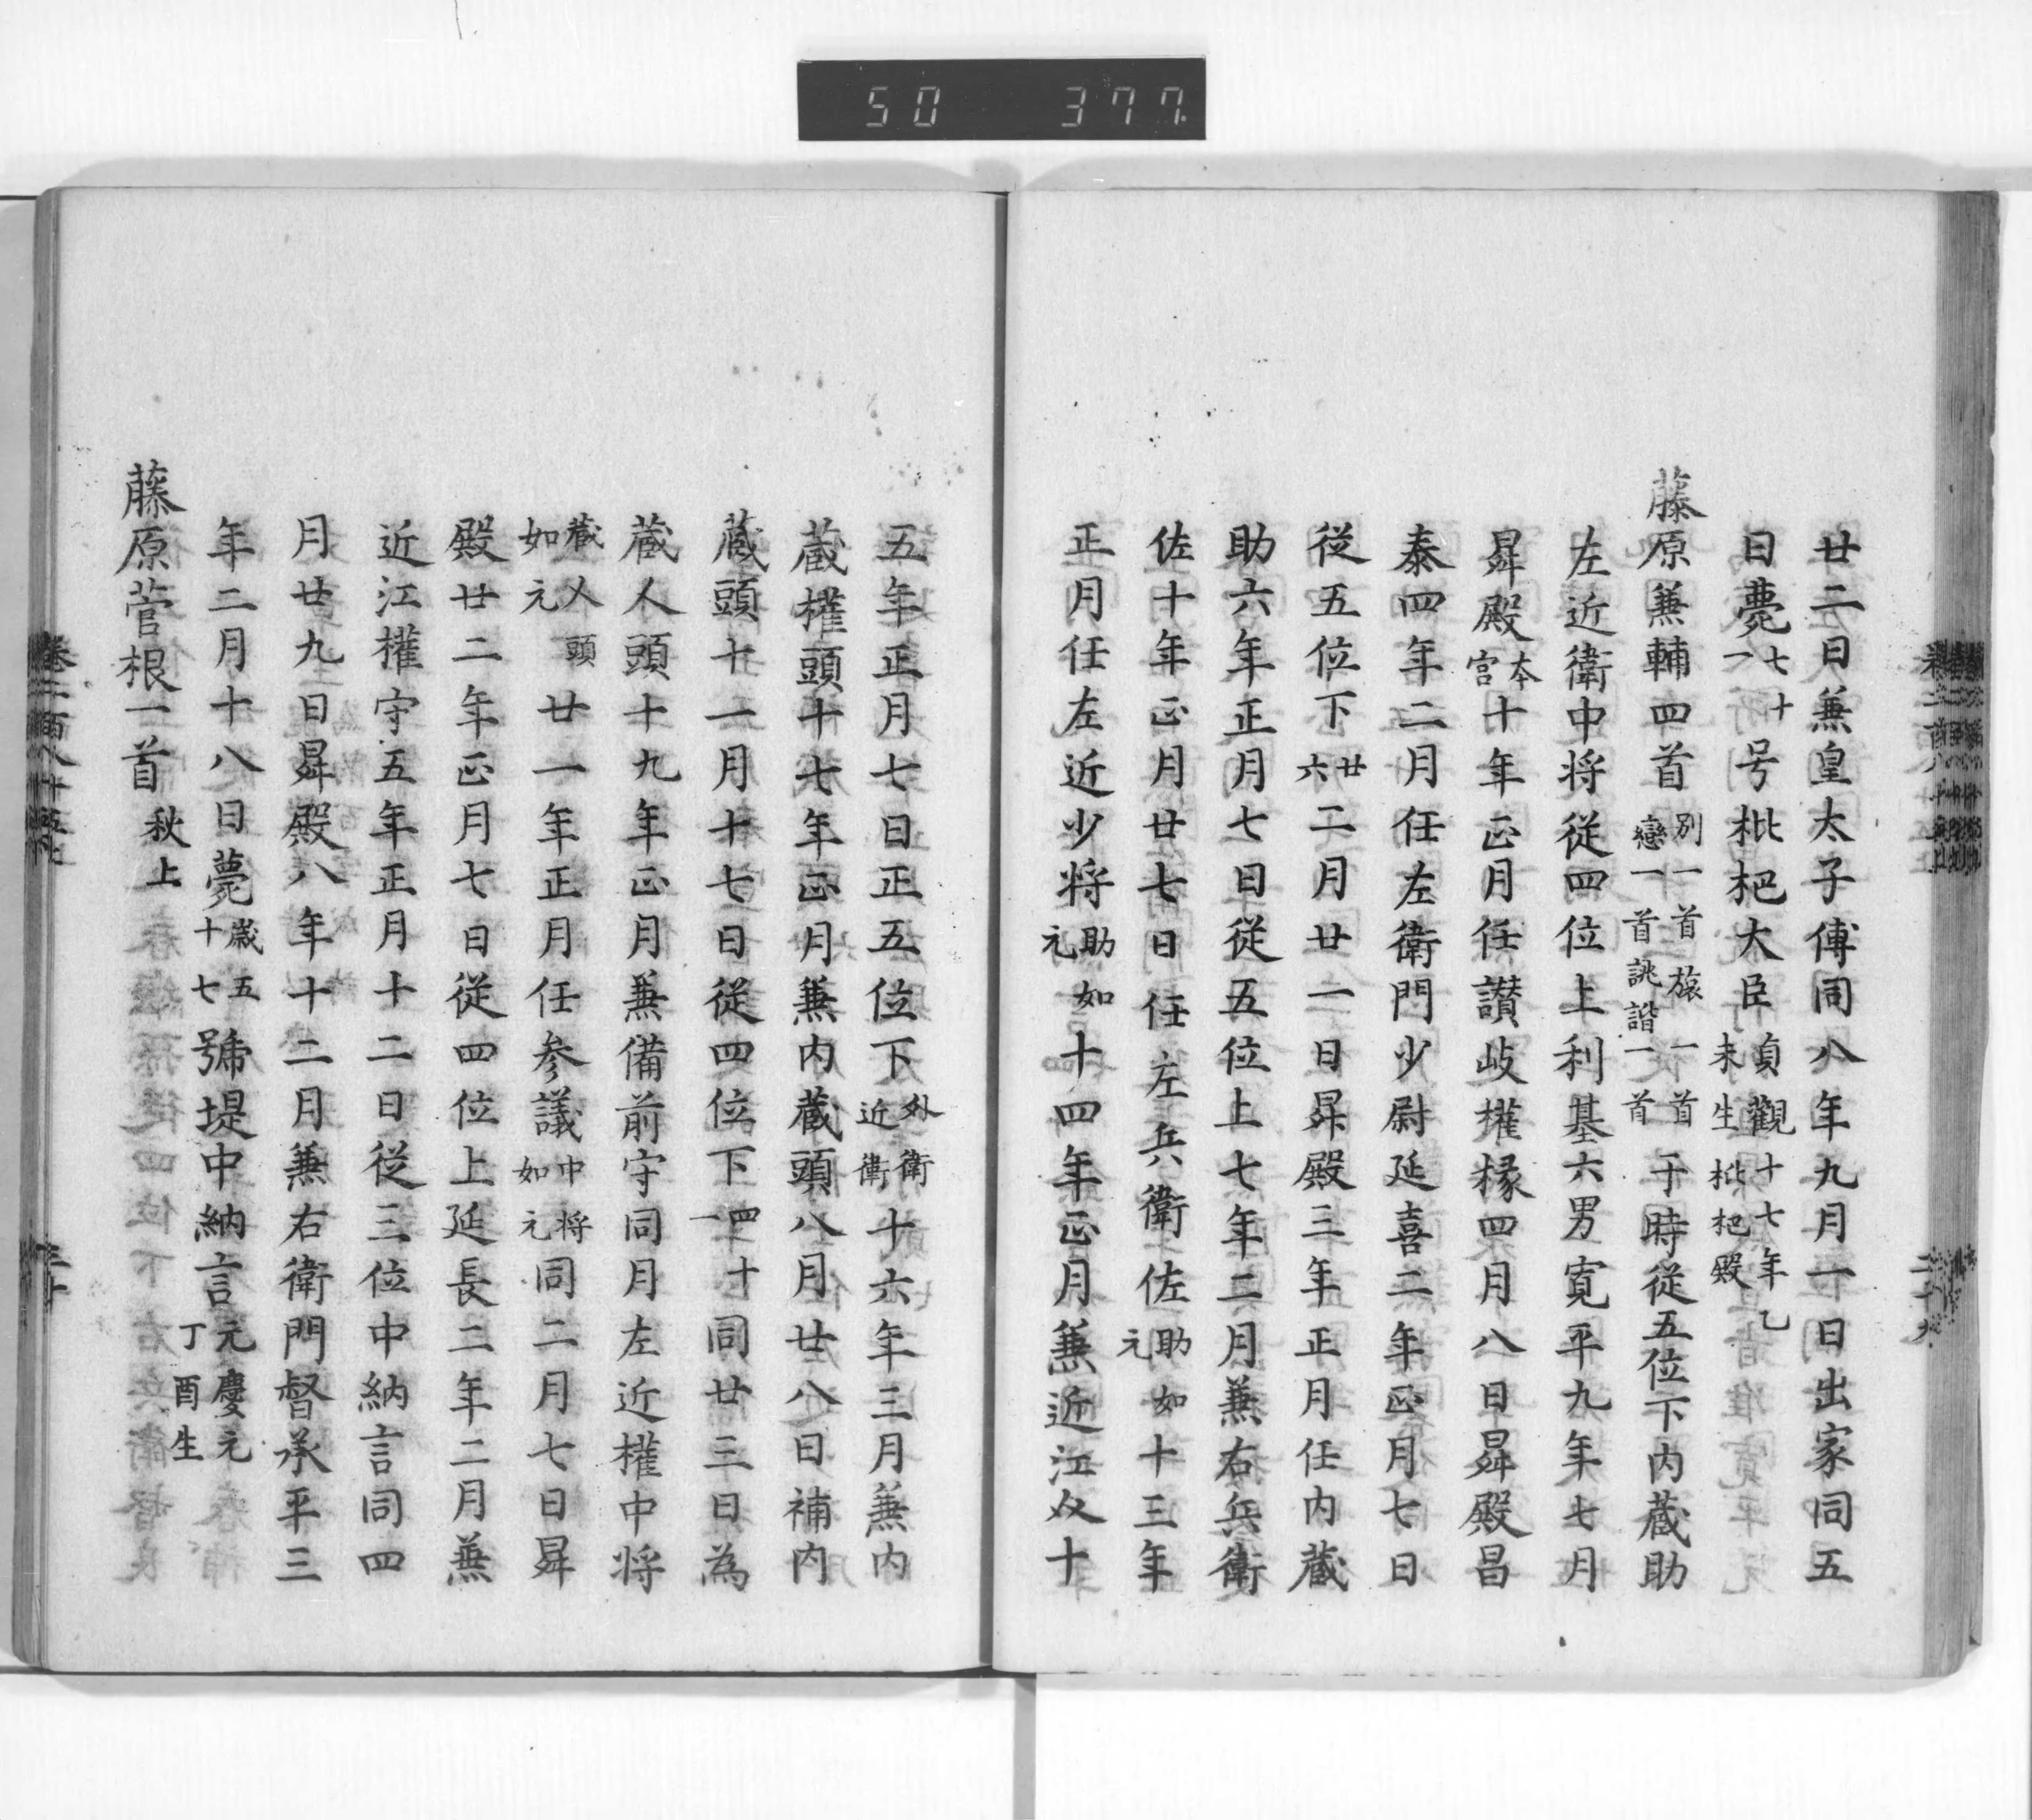 50 377
廿二日兼皇太子傅同八年九月一日出家同五
日薨七十一号枇杷大臣貞觀十七年乙未生枇杷殿
藤原兼輔四首別一首旅一首戀一首誹諧一首于時従五位下内蔵助
左近衛中将従四位上利基六男寛平九年七月
昇殿本宮十年正月任讃岐権掾四月八日昇殿昌
泰四年二月任左衛門少尉延喜二年正月七日
従五位下廿六二月廿一日昇殿三年正月任内蔵
助六年正月七日従五位上七年二月兼右兵衛
佐十年正月廿七日任左兵衛佐助如元十三年
正月任左近少将助如元十四年正月兼近江介十
五年正月七日正五位下外衛近衛十六年三月兼内
蔵權頭十七年正月兼内蔵頭八月廿八日補内
蔵頭十一月十七日従四位下四十一同廿三日為
蔵人頭十九年正月兼備前守同月左近權中将
蔵人頭如元廿一年正月任参議中将如元同二月七日昇
殿廿二年正月七日従四位上延長二年二月兼
近江權守五年正月十二日従三位中納言同四
月廿九日昇殿八年十二月兼右衛門督承平三
年二月十八日薨歳五十七號堤中納言元慶元丁酉生
藤原菅根一首秋上